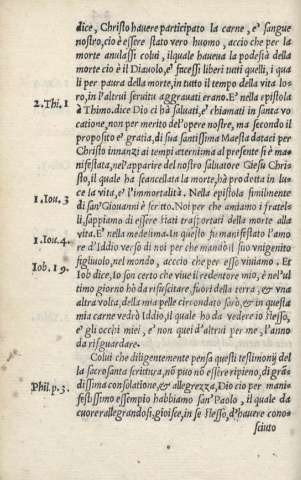 dice, Christo hauere participato la carne, e' sangue
nostro, cio è essere stato vero huomo, accio che per la
morte anulassi colui, ilquale haueua la podestà della
morte cio è il Diauolo, e' facessi liberi tutti quelli, i qua
li per paura della morte, in tutto il tempo della vita lo-
ro, in l'altrui seruitu aggrauati erano. E' nella epistola
2. Thi. 1
à Thimo. dice Dio ci hà saluati, e' chiamati in santa vo
catione, non per merito del'opere nostre, ma secondo il
proposito e' gratia, di sua santissima Maesta datati per
Christo innanzi ai tempi aeterni, ma al presente si è ma
nifestata, nel'apparire del nostro saluatore Giesu Chri-
sto, il quale ha scancellata la morte, hà prodetta in lu-
ce la vita, e' l'immortalità. Nella epistola similmente
1. Iou. 3
di san'Giouanni è scritto. Noi per che amiamo i fratel-
li, sappiamo di essere stati trasportati della morte alla
vita. E' nella medesima. In questo fu manifestato l'amo
1. Iou. 4.
re d'Iddio verso di noi per che mandò il suo vnigenito
figliuolo, nel mondo, accio che per esso viuiamo. Et
Iob. 19.
Iob dice, Io son certo che viue il redentore mio, è nel'ul
timo giorno hò da risuscitare, fuori della terra, & vna
altra volta, della mia pelle circondato sarò, & in questa
mia carne vedrò Iddio, il quale ho da vedere io stesso,
e' gli occhi miei, e' non quei d'altrui per me, l'anno
da risguardare.
Colui che diligentemente pensa questi testimonij del
la sacrosanta scrittura, nō puo nō essere ripieno, di gran
dissima consolatione, & allegrezza, Dio cio per mani-
Phil. p. 3.
festissimo essempio habbiamo san'Paolo, il quale da
cuore rallegrandosi, gioisce, in se stesso, d'hauere cono-
sciuto